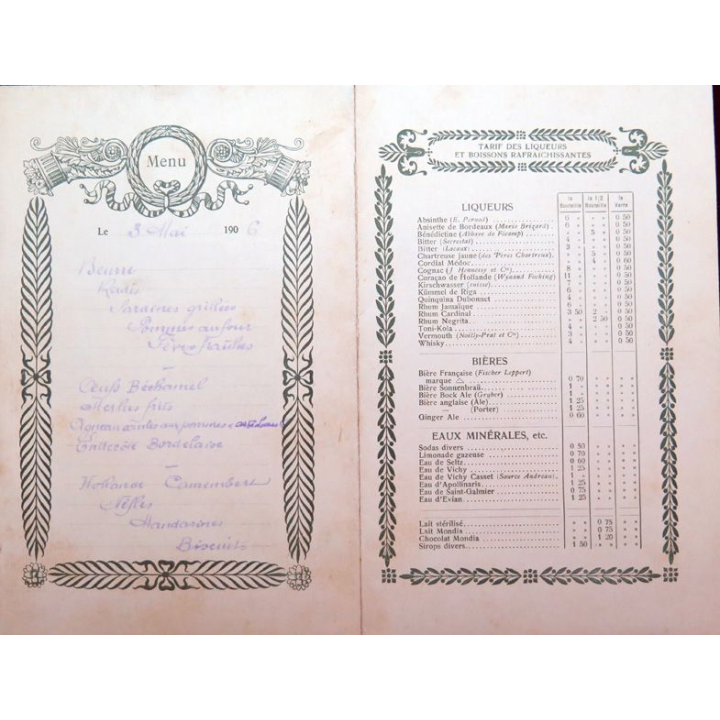 Menu
Le 3 Mai 1906
Beurre
Radis
Sardines grillées
Pommes au four
Fèves
Œufs Béchamel
Merlus frits
aux pommes
Entrecôte Bordelaise
Hollande Camembert
Nèfles
Mandarines
Biscuits
TARIF DES LIQUEURS
ET BOISSONS RAFRAICHISSANTES
LIQUEURS
la Bouteille la 1/2 Bouteille le Verre
Absinthe (E. Pernod) 6 » » 0 50
Anisette de Bordeaux (Marie Brizard) 6 » » 0 50
Bénédictine (Abbaye de Fécamp) » 5 » 0 50
Bitter (Secrestat) 4 » » 0 50
Bitter 3 » » 0 50
Chartreuse jaune (des Pères Chartreux) » 5 » 0 50
Cordial Médoc » 4 » 0 60
Cognac (J. Hennessy et Cº) 8 » » 0 50
Curaçao de Hollande (Wynand Focking) 11 » » 0 50
Kirschwasser (suisse) 7 » » 0 50
Kümmel de Riga 6 » » 0 50
Quinquina Dubonnet 4 » » 0 50
Rhum Jamaïque 6 » » 0 50
Rhum Cardinal 3 50 2 » 0 50
Rhum Negrita » » 2 50 0 50
Toni-Kola 4 » » 0 50
Vermouth (Noilly-Prat et Cº) 3 » » 0 50
Whisky 4 » » 0 50
BIÈRES
Bière Française (Fischer Leppert)
marque △ 0 70 » » » »
Bière Sonnenbraü 1 » » » » »
Bière Bock Ale (Gruber) 1 » » » » »
Bière anglaise (Ale) 1 25 » » » »
— (Porter) 1 25 » » » »
Ginger Ale 0 60 » » » »
EAUX MINÉRALES, etc.
Sodas divers 0 50 » » » »
Limonade gazeuse 0 70 » » » »
Eau de Seltz 0 60 » » » »
Eau de Vichy 1 25 » » » »
Eau de Vichy Cusset (Source Andreau) 1 » » » » »
Eau d'Apollinaris 1 25 » » » »
Eau de Saint-Galmier 0 75 » » » »
Eau d'Evian 1 25 » » » »
Lait stérilisé » » 0 75 » »
Lait Mondia » » 0 75 » »
Chocolat Mondia » » 1 20 » »
Sirops divers 1 50 » » » »